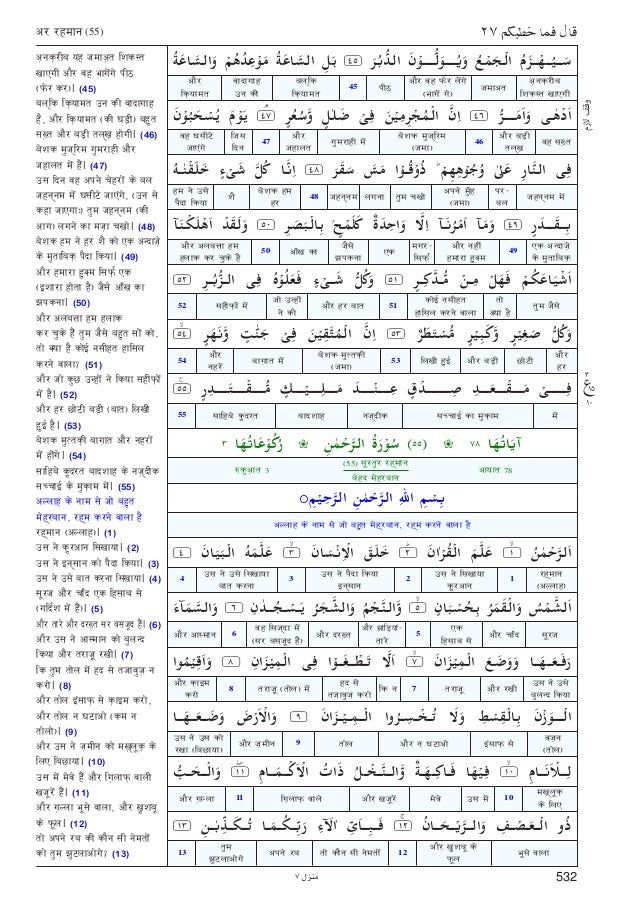 अर रहमान (55)
قال فما خطبكم ٢٧
अ़नक़रीब यह जमाअ़त शिकस्त
खाएगी और वह भागेंगे पीठ
(फेर कर)। (45)
बल्कि क़ियामत उन की वादागाह
है, और क़ियामत (की घड़ी) बहुत
सख़्त और बड़ी तल्ख़ होगी। (46)
बेशक मुज्रिम गुमराही और
जहालत में हैं। (47)
उस दिन वह अपने चेहरों के बल
जहन्नम में घसीटे जाएंगे, (उन से
कहा जाएगाः) तुम जहन्नम (की
आग) लगने का मज़ा चखो। (48)
बेशक हम ने हर शै को एक अन्दाज़े
के मुताबिक़ पैदा किया। (49)
और हमारा हुक्म सिर्फ़ एक
(इशारा होता है) जैसे आँख का
झपकना। (50)
और अलबत्ता हम हलाक
कर चुके हैं तुम जैसे बहुत सों को,
तो क्या है कोई नसीहत हासिल
करने वाला? (51)
और जो कुछ उन्हों ने किया सहीफ़ों
में है। (52)
और हर छोटी बड़ी (बात) लिखी
हुई है। (53)
बेशक मुत्तक़ी बाग़ात और नहरों
में होंगे। (54)
साहिबे कुदरत बादशाह के नज़्दीक
सच्चाई के मुक़ाम में। (55)
अल्लाह के नाम से जो बहुत
मेह्रबान, रह्म करने वाला है
रहमान (अल्लाह)। (1)
उस ने कुरआन सिखाया। (2)
उस ने इन्सान को पैदा किया। (3)
उस ने उसे बात करना सिखाया। (4)
सूरज और चाँद एक हिसाब से
(गर्दिश में हैं)। (5)
और तारे और दरख़्त सर बसजूद हैं। (6)
और उस ने आस्मान को बुलन्द
किया और तराजू रखी। (7)
कि तुम तोल में हद से तजावुज़ न
करो। (8)
और तोल इंसाफ़ से क़ाइम करो,
और तोल न घटाओ (कम न
तोलो)। (9)
और उस ने ज़मीन को मख़्लूक़ के
लिए बिछाया। (10)
उस में मेवे हैं और ग़िलाफ़ वाली
खजूरें हैं। (11)
और ग़ल्ला भूसे वाला, और खुशबू
के फूल। (12)
तो अपने रब की कौन सी नेमतों
को तुम झुटलाओगे? (13)
سَيُهْزَمُ الْجَمْعُ وَيُوَلُّوْنَ الدُّبُرَ ٤٥ بَلِ السَّاعَةُ مَوْعِدُهُمْ وَالسَّاعَةُ
अ़नक़रीब शिकस्त खाएगी जमाअ़त और वह फेर लेंगे (भागेंगे) पीठ 45 बल्कि क़ियामत वादागाह उन की और क़ियामत
اَدْهٰى وَاَمَرُّ ٤٦ اِنَّ الْمُجْرِمِيْنَ فِيْ ضَلٰلٍ وَّسُعُرٍ ٤٧ يَوْمَ يُسْحَبُوْنَ
वह सख़्त और बड़ी तल्ख़ 46 बेशक मुज्रिम (जमा) गुमराही में और जहालत 47 जिस दिन वह घसीटे जाएंगे
فِى النَّارِ عَلٰى وُجُوْهِهِمْ ذُوْقُوْا مَسَّ سَقَرَ ٤٨ اِنَّا كُلَّ شَيْءٍ خَلَقْنٰهُ
जहन्नम में पर-बल अपने मुँह (जमा) तुम चखो लगना जहन्नम 48 बेशक हम हर शै हम ने उसे पैदा किया
بِقَدَرٍ ٤٩ وَمَآ اَمْرُنَآ اِلَّا وَاحِدَةٌ كَلَمْحٍۢ بِالْبَصَرِ ٥٠ وَلَقَدْ اَهْلَكْنَآ
एक अन्दाज़े के मुताबिक़ 49 और नहीं हमारा हुक्म मगर-सिर्फ़ एक जैसे झपकना आँख का 50 और अलबत्ता हम हलाक कर चुके हैं
اَشْيَاعَكُمْ فَهَلْ مِنْ مُّدَّكِرٍ ٥١ وَكُلُّ شَيْءٍ فَعَلُوْهُ فِى الزُّبُرِ ٥٢
तुम जैसे तो क्या है कोई नसीहत हासिल करने वाला 51 और हर बात जो उन्हों ने की सहीफ़ों में 52
وَكُلُّ صَغِيْرٍ وَّكَبِيْرٍ مُّسْتَطَرٌ ٥٣ اِنَّ الْمُتَّقِيْنَ فِيْ جَنّٰتٍ وَّنَهَرٍ ٥٤
और हर छोटी और बड़ी लिखी हुई 53 बेशक मुत्तक़ी (जमा) बाग़ात में और नहरें 54
فِيْ مَقْعَدِ صِدْقٍ عِنْدَ مَلِيْكٍ مُّقْتَدِرٍ ٥٥
में सच्चाई का मुक़ाम नज़्दीक बादशाह साहिबे कुदरत 55
اٰيَاتُهَا ٧٨ (٥٥) سُوْرَةُ الرَّحْمٰنِ رُكُوْعَاتُهَا ٣
आयात 78 (55) सूरतुर रहमान बेहद मेहरबान रुकुआ़त 3
بِسْمِ اللّٰهِ الرَّحْمٰنِ الرَّحِيْمِ
अल्लाह के नाम से जो बहुत मेह्रबान, रह्म करने वाला है
اَلرَّحْمٰنُ ١ عَلَّمَ الْقُرْاٰنَ ٢ خَلَقَ الْاِنْسَانَ ٣ عَلَّمَهُ الْبَيَانَ ٤
रहमान (अल्लाह) 1 उस ने सिखाया कुरआन 2 उस ने पैदा किया इन्सान 3 उस ने उसे सिखाया बात करना 4
اَلشَّمْسُ وَالْقَمَرُ بِحُسْبَانٍ ٥ وَّالنَّجْمُ وَالشَّجَرُ يَسْجُدٰنِ ٦ وَالسَّمَآءَ
सूरज और चाँद एक हिसाब से 5 और झाड़ियां-तारे और दरख़्त वह सिज्दा में (सर बसजूद हैं) 6 और आस्मान
رَفَعَهَا وَوَضَعَ الْمِيْزَانَ ٧ اَلَّا تَطْغَوْا فِى الْمِيْزَانِ ٨ وَاَقِيْمُوا
उस ने उसे बुलन्द किया और रखी तराजू 7 कि न हद से तजावुज़ करो तराजू (तोल) में 8 और क़ाइम करो
الْوَزْنَ بِالْقِسْطِ وَلَا تُخْسِرُوا الْمِيْزَانَ ٩ وَالْاَرْضَ وَضَعَهَا
वज़न (तोल) इंसाफ़ से और न घटाओ तोल 9 और ज़मीन उस ने उस को रखा (बिछाया)
لِلْاَنَامِ ١٠ فِيْهَا فَاكِهَةٌ وَّالنَّخْلُ ذَاتُ الْاَكْمَامِ ١١ وَالْحَبُّ
मख़्लूक़ के लिए 10 उस में मेवे और खजूरें ग़िलाफ़ वाले 11 और ग़ल्ला
ذُو الْعَصْفِ وَالرَّيْحَانُ ١٢ فَبِاَيِّ اٰلَآءِ رَبِّكُمَا تُكَذِّبٰنِ ١٣
भूसे वाला और खुशबू के फूल 12 तो कौन सी नेमतों अपने रब तुम झुटलाओगे 13
منزل ٧
532